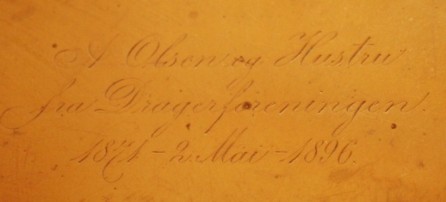 A Olsen og Hustru
fra Dragerforeningen.
1871-2. Mai-1896.